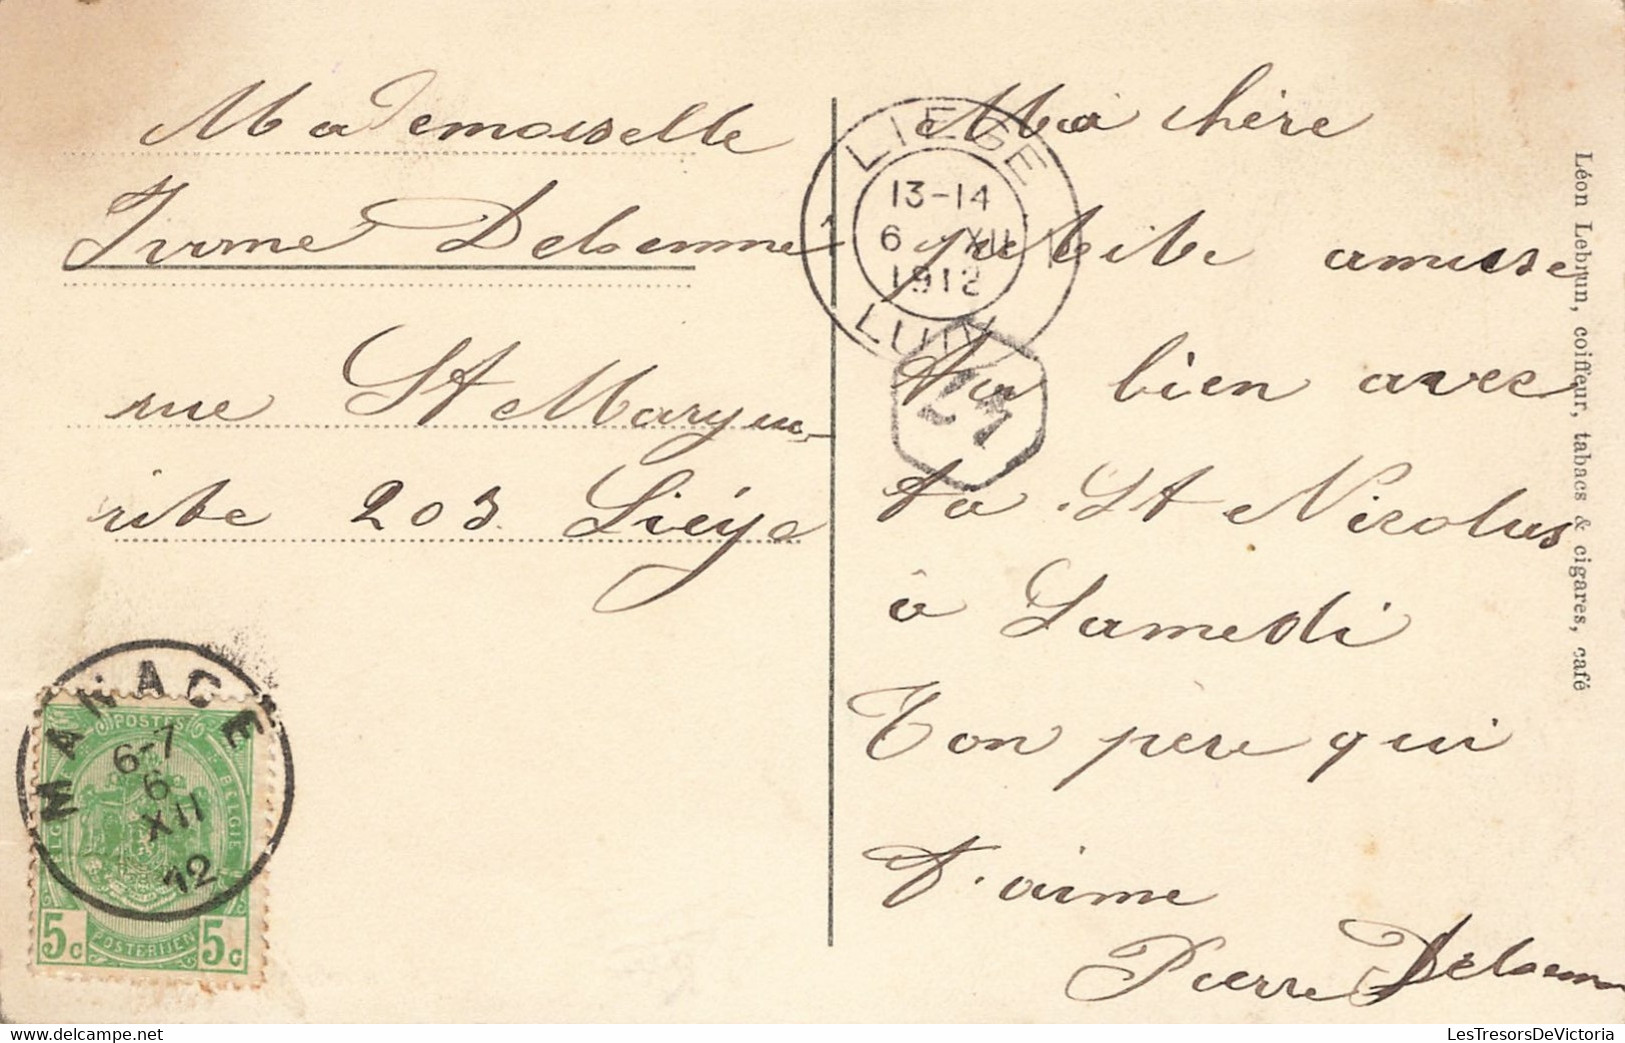 Mademoiselle
Irvme Delsemme
rue St Margue-
rite 203 Liége
Ma chère
petite amuse
ta bien avec
ta St Nicolas
à Samedi
Ton père qui
t'aime
Pierre Delsemme
LIEGE
13-14
6 XII
1912
LUIK
MANAGE
6-7
6
XII
12
POSTES
BELGIE
POSTERIJEN
5c 5c
Léon Lebrun, coiffeur, tabacs & cigares, café
LesTresorsDeVictoria